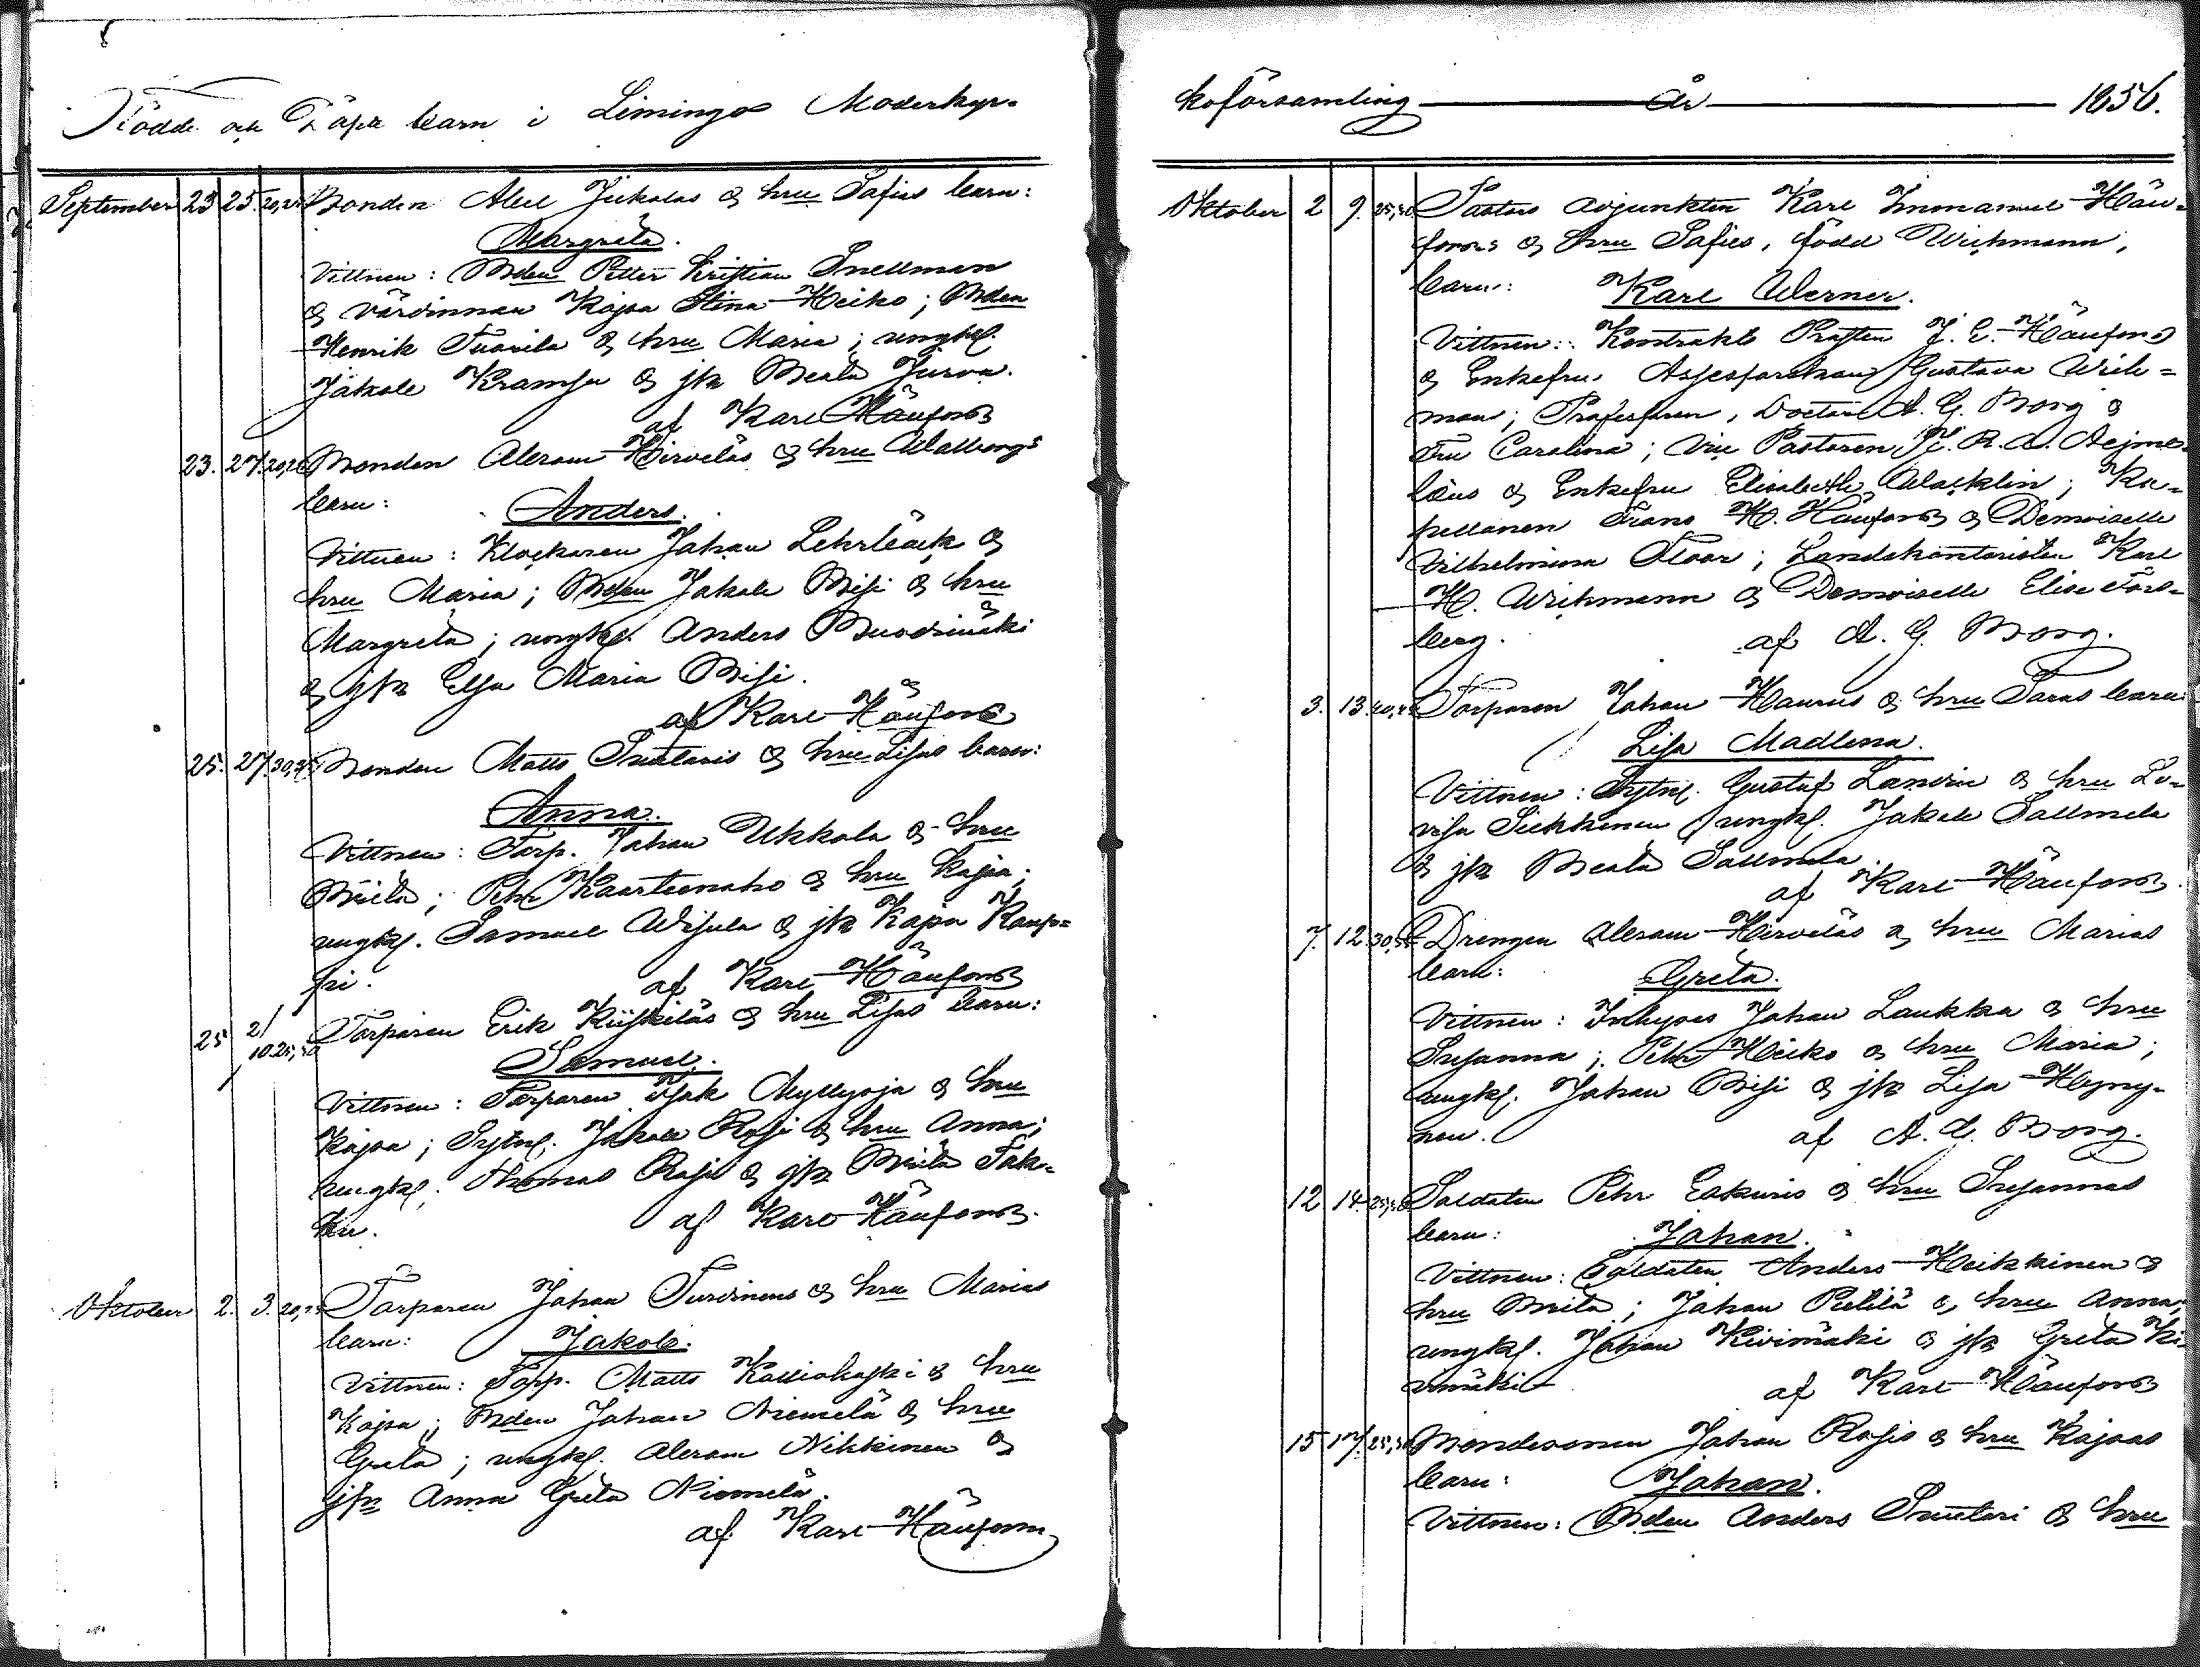 Födde och Döpte barn i Limingo Moderkyr-
September 23 25. 20,25 Bonden Abel Jukolas & hru Sofias barn:
Margreta.
Vittnen: Bden Petter Kristian Snellman
& värdinnan Kajsa Stina Heiko; Bden
Henrik Tuorila & hru Maria; ungkl.
Jakob Kramsu & jfr Beata Jurva.
af Karl Häuforss
23. 27. 20,25 Bonden Abram Hirveläs & hru Walborgs
barn: Anders.
Vittnen: Klockaren Johan Lehrbäck &
hru Maria; Bden Jakob Bisi & hru
Margreta; ungkl. Anders Buodimäki
& jfr Elsa Maria Bisi.
af Karl Häuforss
25. 27. 30,35 Bonden Matts Suutaris & hru Lisas barn:
Anna.
Vittnen: Torp. Johan Ukkola & hru
Briita; Pehr Kaarteenaho & hru Kajsa;
ungkl. Samuel Wisula & jfr Kajsa Kaup-
pi. af Karl Häuforss
25 2/10. 25,30 Torparen Erik Kiiskiläs & hru Lisas barn:
Samuel.
Vittnen: Torparen Isak Myllyoja & hru
Kajsa; Sytn. Jakob Rosi & hru Anna;
ungkl. Thomas Rosi & jfr Briita Tak-
ku. af Karl Häuforss.
Oktober 2. 3. 20,25 Torparen Johan Turdinens & hru Marias
barn: Jakob.
Vittnen: Torp. Matts Kalliokoski & hru
Kajsa; Bden Johan Niemelä & hru
Greta; ungkl. Abram Nikkinen &
jfr Anna Greta Niemelä.
af Karl Häuforss
koförsamling År 1856.
Oktober 2 9. 25,30 Pastors adjunkten Karl Immanuel Häu-
forss & hru Sofies, född Wichmann,
barn: Karl Werner.
Vittnen: Kontrakts Prosten J. E. Häuforss
& Enkefru Assessorskan Gustava Wich-
man; Professoren, Doctor A. G. Borg &
Fru Carolina; Vice Pastoren J. R. A. Aejme-
læus & Enkefru Elisabeth Wacklin; Ka-
pellanen Frans H. Häuforss & Demoiselle
Vilhelmina Floor; Landskontoristen Karl
H. Wichmann & Demoiselle Elise Fors-
berg. af A. G. Borg.
3. 13. Torparen Johan Haurus & hru Saras barn:
Lisa Madlena.
Vittnen: Sytn. Gustaf Landin & hru Lo-
visa Siekkinen; ungkl. Jakob Sallmela
& jfr Beata Sallmela.
af Karl Häuforss.
7. 12 30,35 Drengen Abram Hirveläs & hru Marias
barn: Greta.
Vittnen: Inhyses Johan Laukka & hru
Susanna; Pehr Heiko & hru Maria;
ungkl. Johan Bisi & jfr Lisa Hyny-
nen. af A. G. Borg.
12 14. 25,30 Soldaten Pehr Eakuris & hru Susannas
barn: Johan.
Vittnen: Soldaten Anders Heikkinen &
hru Briita; Johan Pietilä & hru Anna;
ungkl. Johan Kivimäki & jfr Greta Ki-
vimäki af Karl Häuforss
15 17. 25,30 Bondesonen Johan Rosis & hru Kajsas
barn: Johan.
Vittnen: Bden Anders Suutari & hru